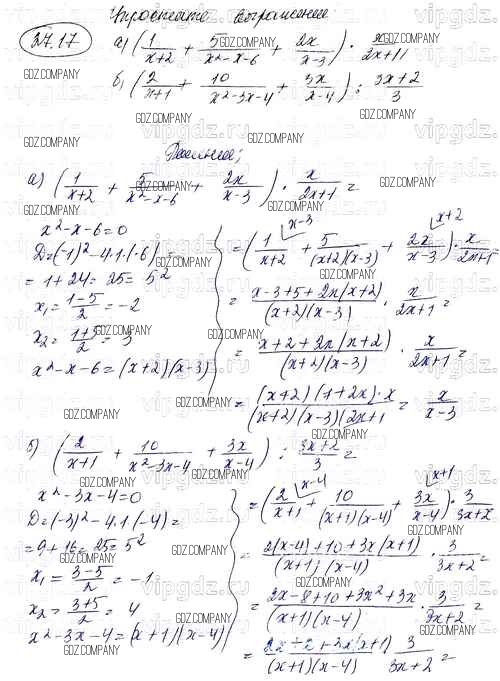 Упростите выражение
37.17
а) (1/(x+2) + 5/(x²-x-6) + 2x/(x-3)) · x/(2x+1)
б) (2/(x+1) + 10/(x²-3x-4) + 3x/(x-4)) : (3x+2)/3
Решение:
а) (1/(x+2) + 5/(x²-x-6) + 2x/(x-3)) · x/(2x+1) =
x²-x-6=0
D=(-1)²-4·1·(-6)=
=1+24=25=5²
x₁=(1-5)/2=-2
x₂=(1+5)/2=3
x²-x-6=(x+2)(x-3)
=(1/(x+2) + 5/((x+2)(x-3)) + 2x/(x-3)) · x/(2x+1)
x-3
x+2
=(x-3+5+2x(x+2))/((x+2)(x-3)) · x/(2x+1) =
=(x+2+2x(x+2))/((x+2)(x-3)) · x/(2x+1) =
=((x+2)(1+2x)·x)/((x+2)(x-3)(2x+1) = x/(x-3)
б) (2/(x+1) + 10/(x²-3x-4) + 3x/(x-4)) : (3x+2)/3 =
x²-3x-4=0
D=(-3)²-4·1·(-4)=
=9+16=25=5²
x₁=(3-5)/2=-1
x₂=(3+5)/2=4
x²-3x-4=(x+1)(x-4)
=(2/(x+1) + 10/((x+1)(x-4)) + 3x/(x-4)) · 3/(3x+2
x-4
x+1
=(2(x-4)+10+3x(x+1))/((x+1)(x-4)) · 3/(3x+2) =
=(2x-8+10+3x²+3x)/((x+1)(x-4)) · 3/(3x+2) =
=(2x+2+3x(x+1))/((x+1)(x-4)) · 3/(3x+2) =
GDZ.COMPANY
vipgdz.ru